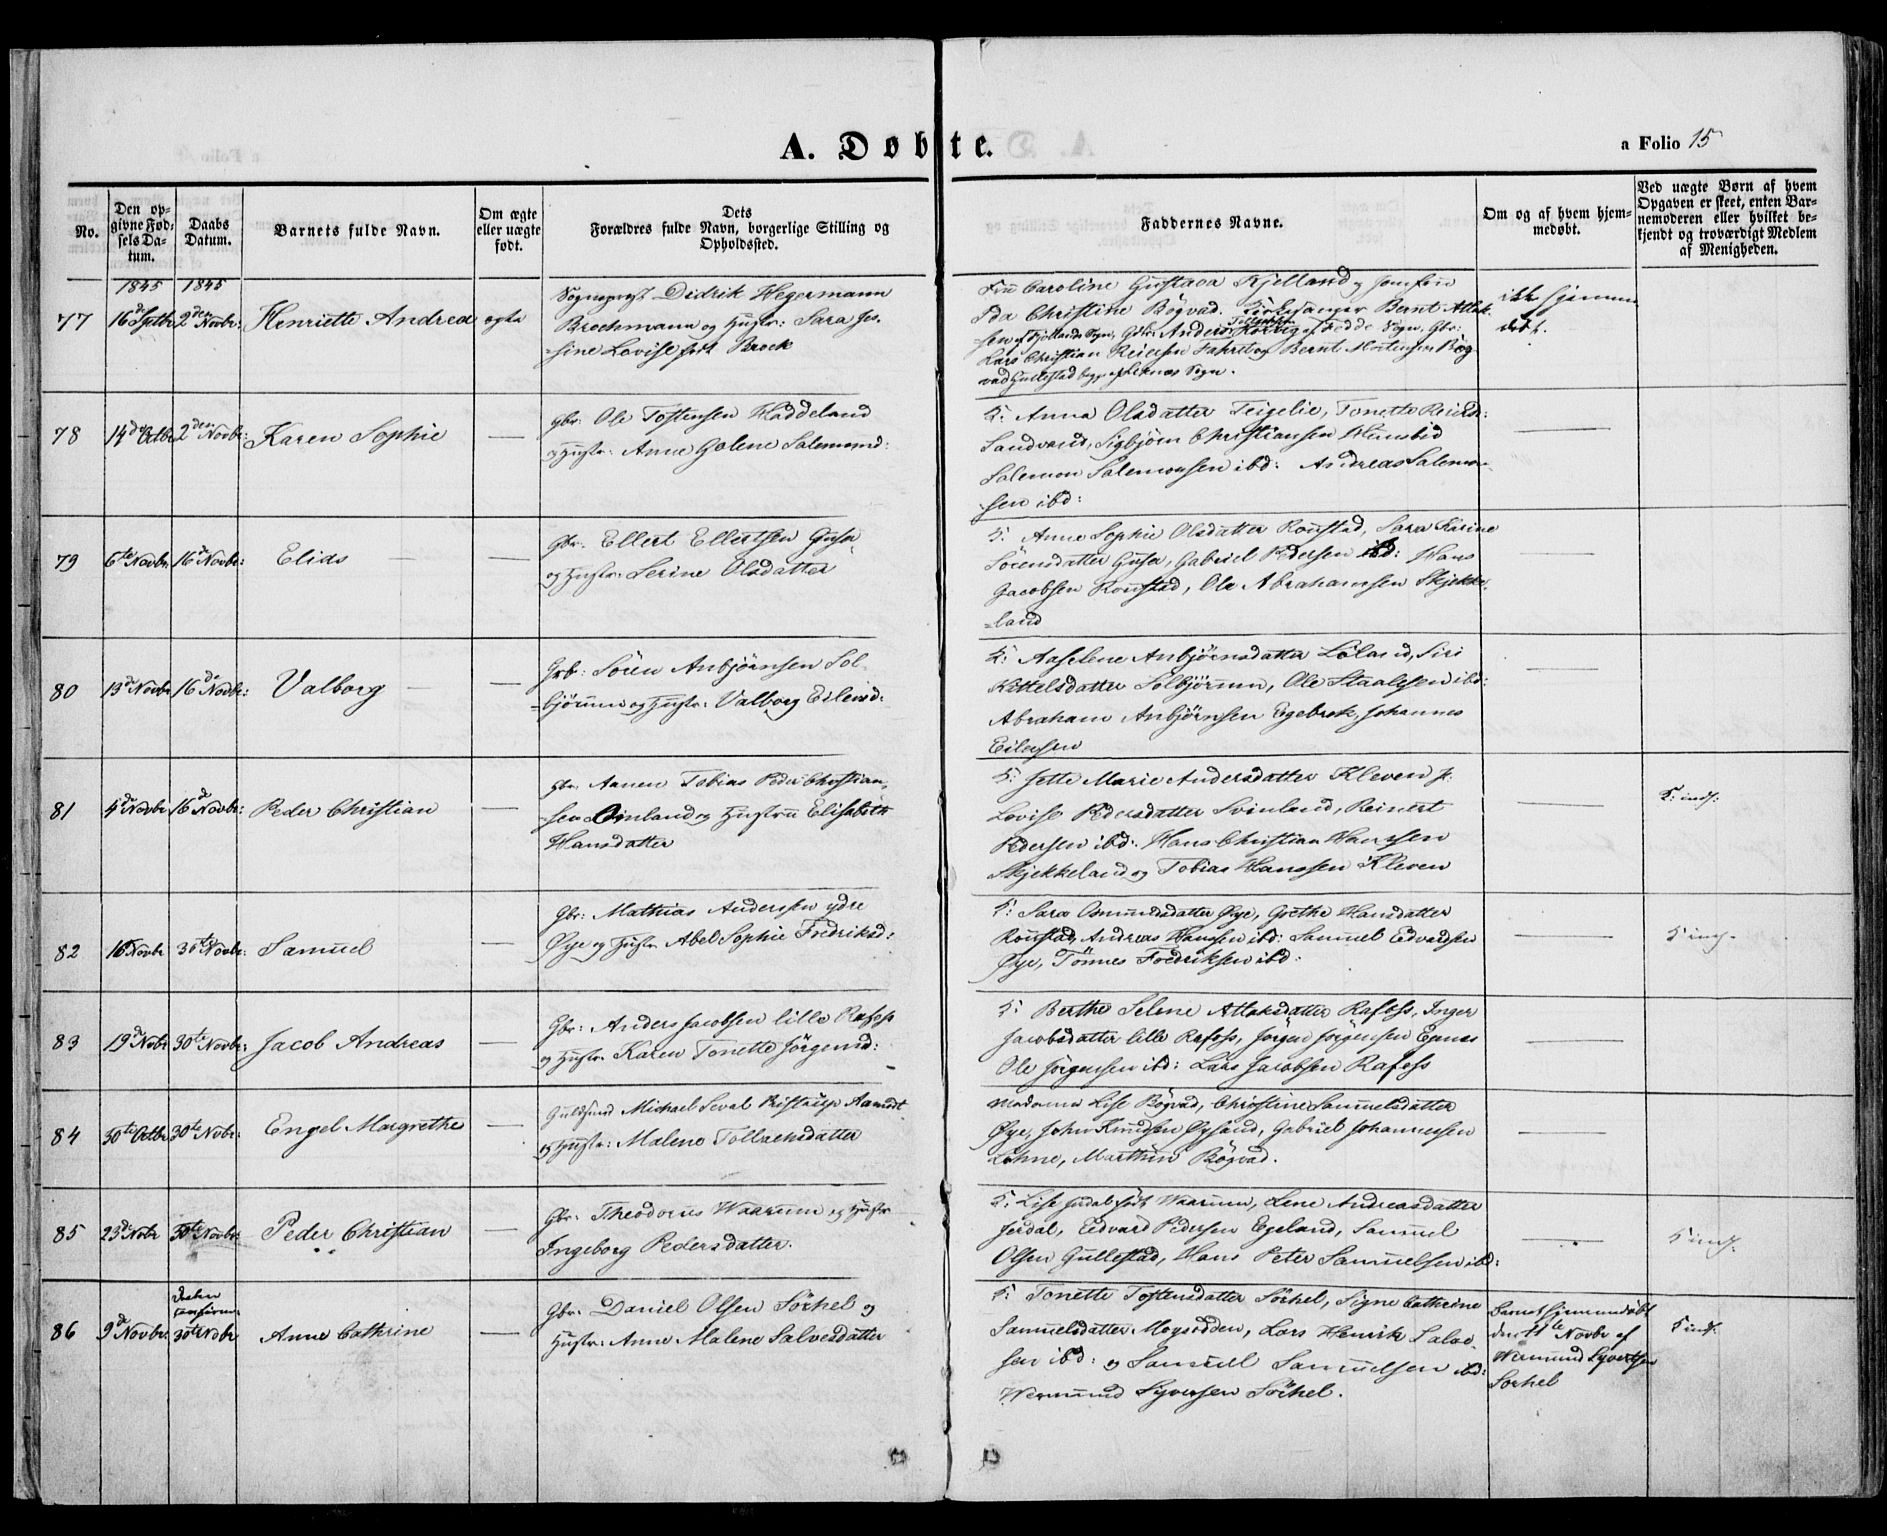 A. Døbte.
a Folio 15
No.
Den op-
givne Fød-
sels Da-
tum.
Daabs
Datum.
Barnets fulde Navn.
Om ægte
eller uægte
født.
Dets
Forældres fulde Navn, borgerlige Stilling og
Opholdssted.
Faddernes Navne.
Om og af hvem hjem-
medøbt.
Ved uægte Børn af hvem
Opgaven er skeet, enten Bar-
nemoderen eller hvilket be-
kjendt og troværdigt Medlem
af Menigheden.
1845 1845
77 16de Septbr 2den Novbr: Henriette Andrea ægte
Sogneprest Didrik Hegermann
Brochmann og Hustr: Sara Jo-
sine Lovise født Brock
Fru Caroline Gustava Kjelland og Jomfru
Ida Christine Bögvad. Kirkesanger Bernt Atlak-
sen af Fjotlands Sogn, Gbr: Anders Tollaksen Rörvig af Fedde Sogn, Gbr:
Lars Christian Reiersen Fahret og Bernt Mortensen Bög-
vad Gullestad begge af Leknes Sogn.
ikke hjemme
døbt.
78 14de Octbr 2den Novbr: Karen Sophie —
Gbr: Ole Tostensen Haddeland
og Hustr: Anne Golene Salomond:
F: Anna Olsdatter Teigelie, Tonette Reiersd:
Sandvand, Sigbjörn Christiansen Hunsbed
Salemon Salemonsen ibd: Andreas Salemon-
sen ibd:
79 6te Novbr 16de Novbr: Elias —
Gbr: Ellert Ellertsen Gusa
og Hustr: Serine Olsdatter
F: Anne Sophie Olsdatter Roustad, Sara Karine
Sörensdatter Gusa, Gabriel Pedersen ibd: Hans
Jacobsen Roustad, Ole Abrahamsen Skjekke-
land
80 13de Novbr 16de Novbr: Valborg —
Gbr: Sören Anbjörnsen Sol-
björuum og Hustr: Valborg Eilevsd:
F: Aaselene Anbjörnsdatter Löland, Siri
Kittelsdatter Solbjöruum, Ole Staalesen ibd:
Abraham Anbjörnsen Egebrok, Johannes
Eilevsen
81 4de Novbr 16de Novbr: Peder Christian —
Gbr: Aanen Tobias Peder Christian-
sen Omland og Hustru Elisabeth
Hansdatter
F: Jette Marie Andersdatter Kleven
Lovise Pedersdatter Svinland, Reinert
Pedersen ibd: Hans Christian Hanssen
Skjekkeland og Tobias Hanssen Kleven
F: inds:
82 16 Novbr 30te Novbr: Samuel —
Gbr: Mathias Andersen ydre
Øye og Hustr: Abel Sophie Fredriksd:
F: Sara Osmundsdatter Øye, Grethe Hansdatter
Roustad, Andreas Hanssen ibd: Samuel Edvardsen
Øye, Tönnes Fredriksen ibd:
F: inds.
83 19de Novbr 30te Novbr: Jacob Andreas —
Gbr: Anders Jacobsen lille Rafoss
og Hustr: Karen Tonette Jörgensd:
F: Berthe Selene Atlaksdatter Rafoss, Inger
Jacobsdatter lille Rafoss, Jörgen Jörgensen Egnes
Ole Jörgensen ibd: Lars Jacobsen Rafoss
84 30te Octbr 30te Novbr: Engel Margrethe —
Guldsmed Michael Seval Aamodt
og Hustr: Malene Tollachsdatter
Madame Lise Bögvad, Christine Samuelsdatter
Øye, John Knudsen Øysand, Gabriel Johannessen
Lohne, Marthin Bögvad.
85 23de Novbr 30te Novbr: Peder Christian —
Gbr: Theodorus Waarum og Hustr:
Ingeborg Pedersdatter.
F: Lise Jerdal født Waarum, Lene Andreasdatter
Jerdal, Edvard Pedersen Egeland, Samuel
Olsen Gullestad, Hans Peter Samuelsen ibd:
F: inds.
86 9de Novbr: Daaben confirm: 30te Novbr Anne Cathrine —
Gbr: Daniel Olsen Sörhel og
Hustr: Anne Malene Salvesdatter
F: Tonette Tostensdatter Sörhel, Signe Cathrine
Samuelsdatter Moysodden, Lars Henrik Salve-
sen ibd: og Samuel Samuelsen ibd:
Wermund Syversen Sörhel.
Barnet hjemmedøbt
den 11te Novbr af
Wermund Syvertsen
Sorhel
F: inds.